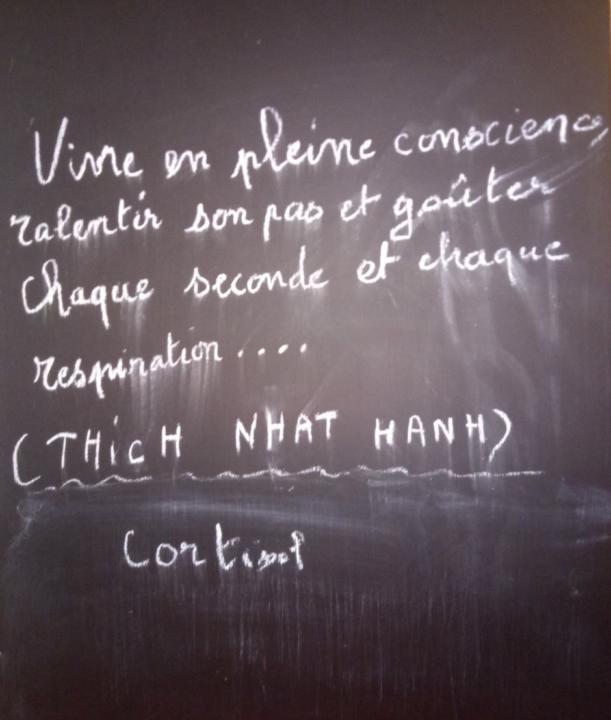 Vivre en pleine conscience,
ralentir son pas et goûter
Chaque seconde et chaque
respiration....
(THicH NHAT HANH)
Cortisol